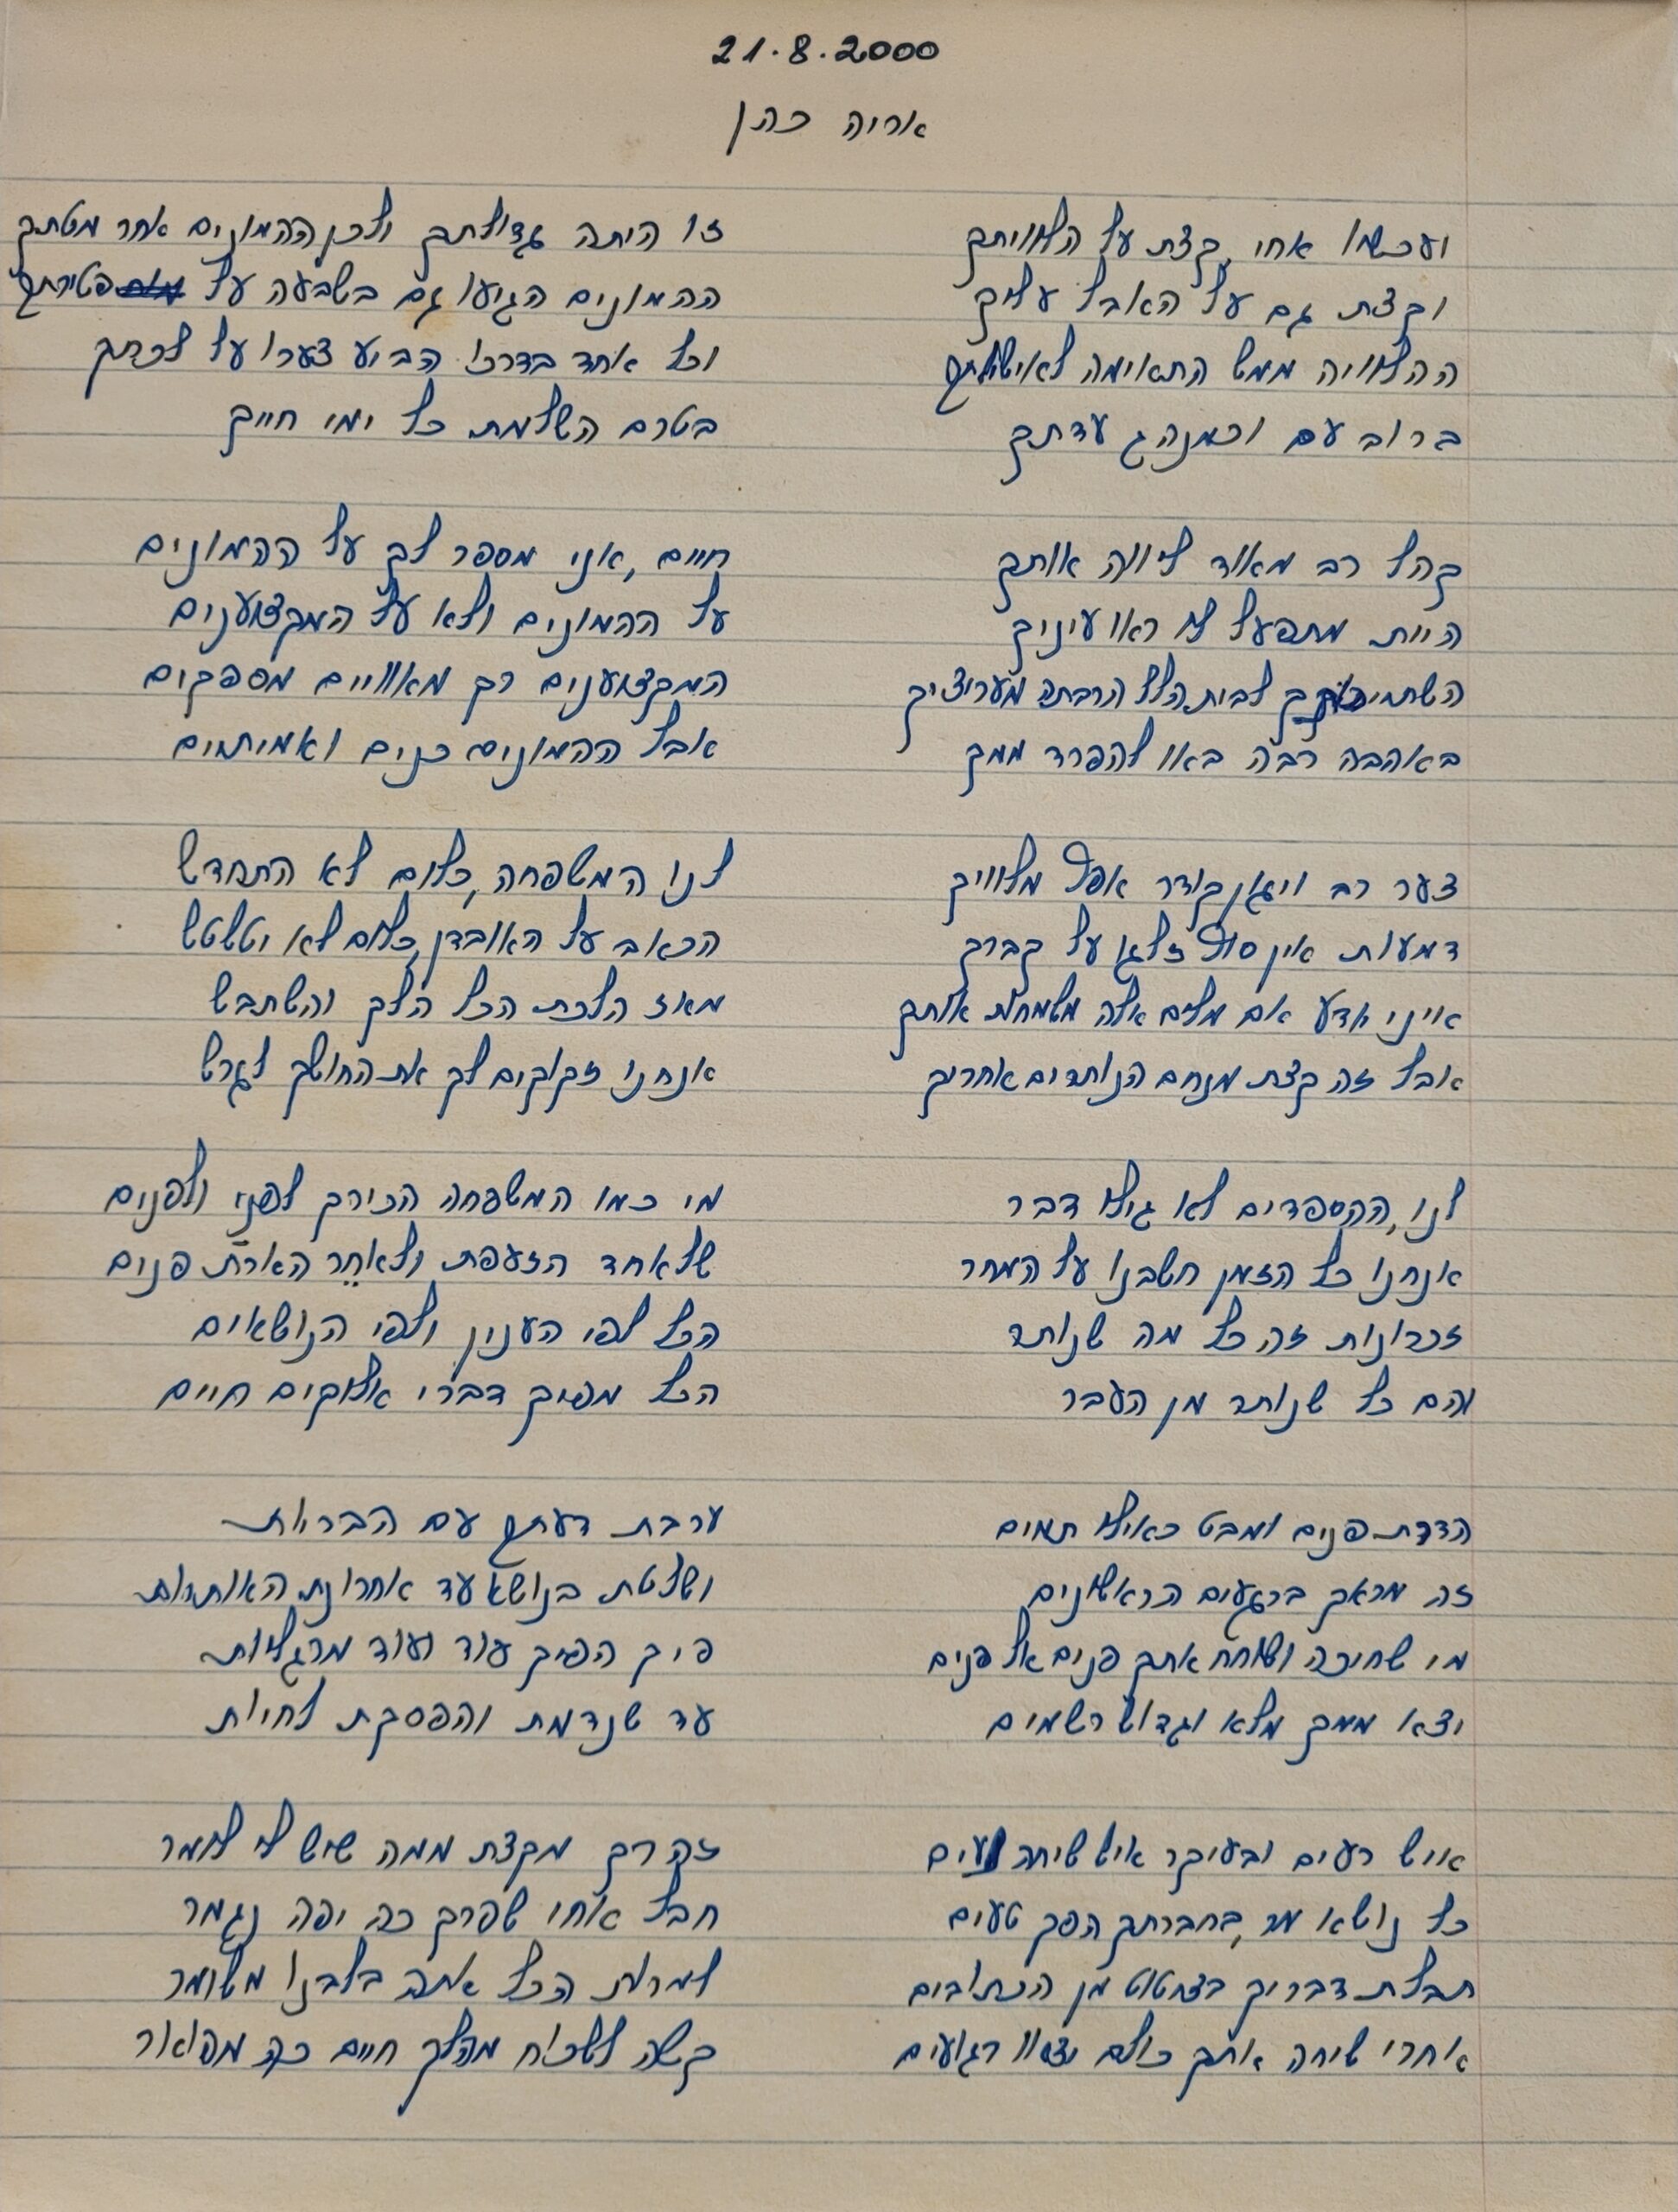 21.8.2000
אריה כהן
ועכשיו אחי, קצת על הלוויתך
וקצת גם על האבל עליך
ההלוויה ממש התאימה לאישיותך
ברוב עם וכמנהג עדתך
קהל רב מאוד ליווה אותך
היית מתפעל לו ראו עיניך
השתייכותך לבית הלל הרבתה מעריציך
באהבה רבה באו להפרד ממך
צער רב ויגון קודר אפף מלוויך
דמעות אין סוף זלגו על קברך
אויני יודע אם מלים אלה משמחות אותך
אבל זה קצת מנחם הנותרים אחריך
לנו, ההספדים לא גילו דבר
אנחנו כל הזמן חשבנו על המחר
זכרונות זה כל מה שנותר
והם כל שנותר מן העבר
הדרת פנים ומבט כאילו תמים
זה מראך ברגעים הראשונים
מי שחיכה ושוחח אתך פנים אל פנים
יצא ממך מלא וגדוש רשמים
איש רעים ובעיקר איש שיחה נעים
כל נושא מר, בחברתך הפך טעים
תבלת דבריך בצטוט מן הכתובים
אחרי שיחה אתך כולם יצאו רגועים
זו היתה גדולתך ולכן ההמונים אחר מטתך
ההמונים הגיעו גם בשבעה על פטירתך
וכל אחד בדרכו הביע צערו על לכתך
בטרם השלמת כל ימי חייך
חיים, אני מספר לך על ההמונים
על ההמונים ולא על המקצוענים
המקצוענים רק מאוויים מספקים
אבל ההמונים כנים ואמיתיים
לנו המשפחה, כלום לא התחדש
הכאב על האובדן, כלום לא יטשטש
מאז הלכת הכל הלך והשתבש
אנחנו זקוקים לך את החושך לגרש
מי כמו המשפחה הכירך לפני ולפנים
שלאחד הזעפת ולאחר הארת פנים
הכל לפי הענין ולפי הנושאים
הכל מפיך דברי אלוקים חיים
ערבת דעתך עם הבריות
ושלטת בנושא עד אחרונת האותיות
פיך הפיק עוד ועוד מרגליות
עד שנדמת והפסקת לחיות
זה רק מקצת ממה שיש לי לומר
חבל אחי שפרק כה יפה נגמר
למרות הכל אתה בלבנו משומר
קשה לשכוח מהלך חיים כה מפואר